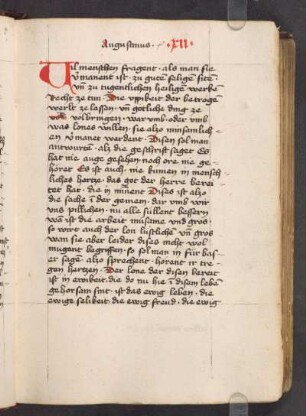 Augustinus · XII ·
Vil menschen fragent · als man sie
vermanent ist · zu guten seligen siten
vnd zu tugentlichen heilige werke
Recht ze tun · Die üppikeit der
werlt ze lassen · vnd gotliche ding ze
volbringen · war vmb oder vmb
was lones willen · sie also
werdent · Disen sol man
antwurten · als die geschrift saget Es
hat nie auge gesehen noch ore ne ge
höret Es ist auch nie kumen in mensch
liches hertze · das got der herre berei
tet hat · die in minnent Dises ist also
die sache in der gemein · dar vmb wir
vns pillichen · nu alle süllent bessern
wan ist die arbeit · vnd gros ·
so wirt auch der lon lustliche vnd gros
wan sie aber leider dises nicht wol
mugent begriffen · so sol man in für bas
er sagen also sprechent · horent ir tre
gen hertzen · Der lone der disen bereit
ist in ewikeit · die do nu hie in disem lebe
gehorsam sint · ist das ewig leben · die
ewige selikeit die ewig freud · die ewig